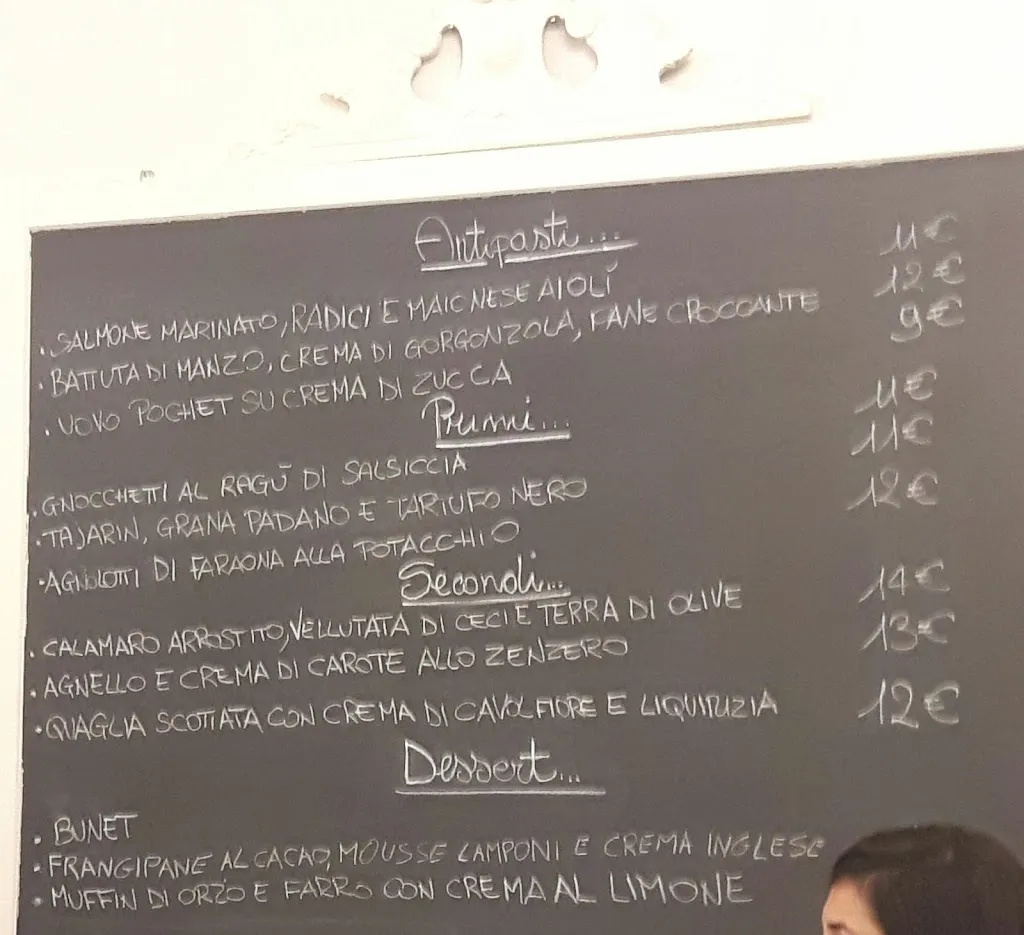 Antipasti...
• SALMONE MARINATO, RADICI E MAIONESE AIOLÍ 11€
• BATTUTA DI MANZO, CREMA DI GORGONZOLA, PANE CROCCANTE 12€
• UOVO POCHET SU CREMA DI ZUCCA 9€
Primi...
• GNOCCHETTI AL RAGÙ DI SALSICCIA 11€
• TAJARIN, GRANA PADANO E TARTUFO NERO 11€
• AGNOLOTTI DI FARAONA ALLA POTACCHIO 12€
Secondi...
• CALAMARO ARROSTITO, VELLUTATA DI CECI E TERRA DI OLIVE 14€
• AGNELLO E CREMA DI CAROTE ALLO ZENZERO 13€
• QUAGLIA SCOTTATA CON CREMA DI CAVOLFIORE E LIQUIRIZIA 12€
Dessert...
• BUNET
• FRANGIPANE AL CACAO, MOUSSE LAMPONI E CREMA INGLESE
• MUFFIN DI ORZO E FARRO CON CREMA AL LIMONE